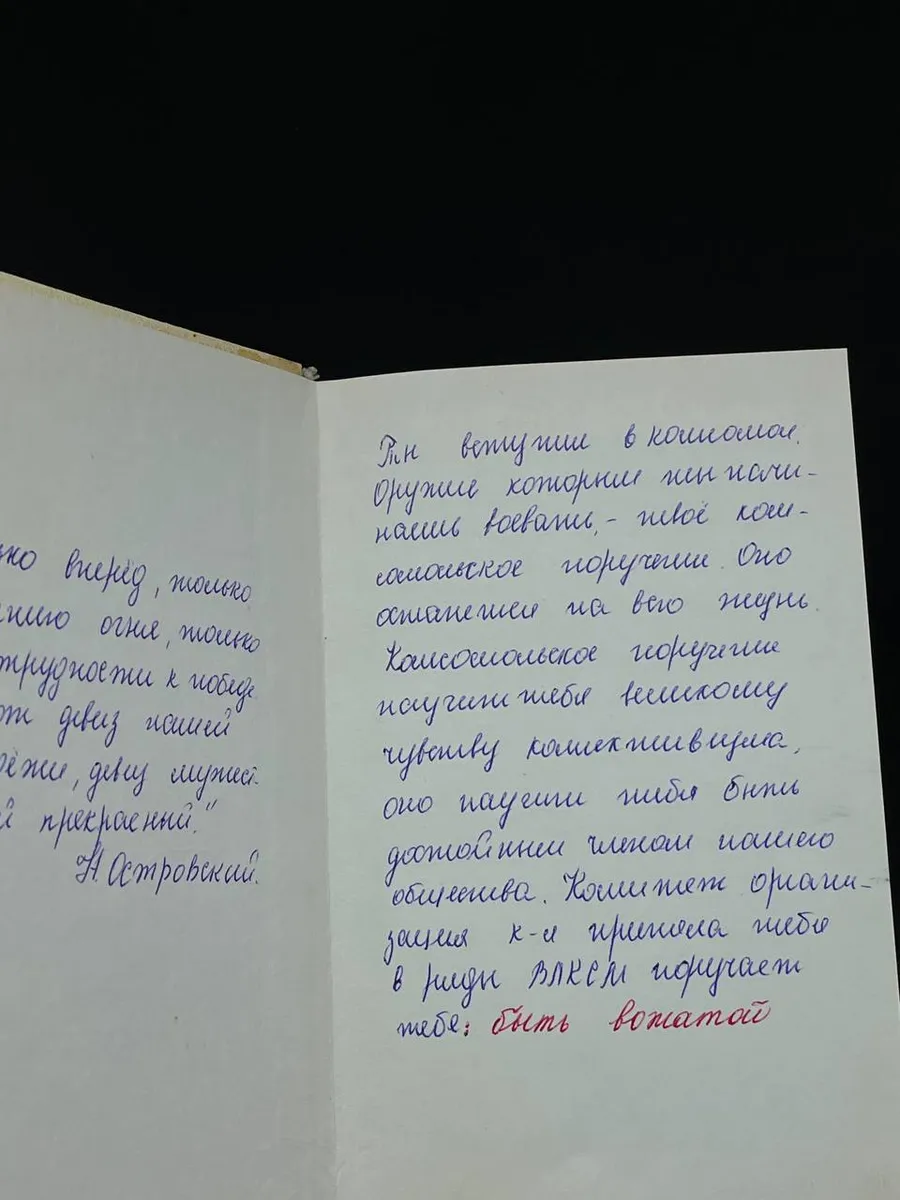 ько вперёд, только
линию огня, только
трудности к победе
от девиз нашей
дёжи, девиз мужест-
й прекрасный."
Н. Островский.
Ты вступил в комсомол.
Оружие которым ты начи-
наешь воевать, – твоё ком-
сомольское поручение. Оно
останется на всю жизнь.
Комсомольское поручение
научит тебя великому
чувству коллективизма,
оно научит тебя быть
достойным членом нашего
общества. Комитет органи-
зация к-я приняла тебя
в ряды ВЛКСМ поручает
тебе: быть вожатой